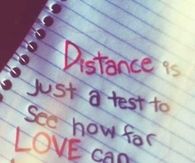 Distance is
just a test to
see how far
LOVE can